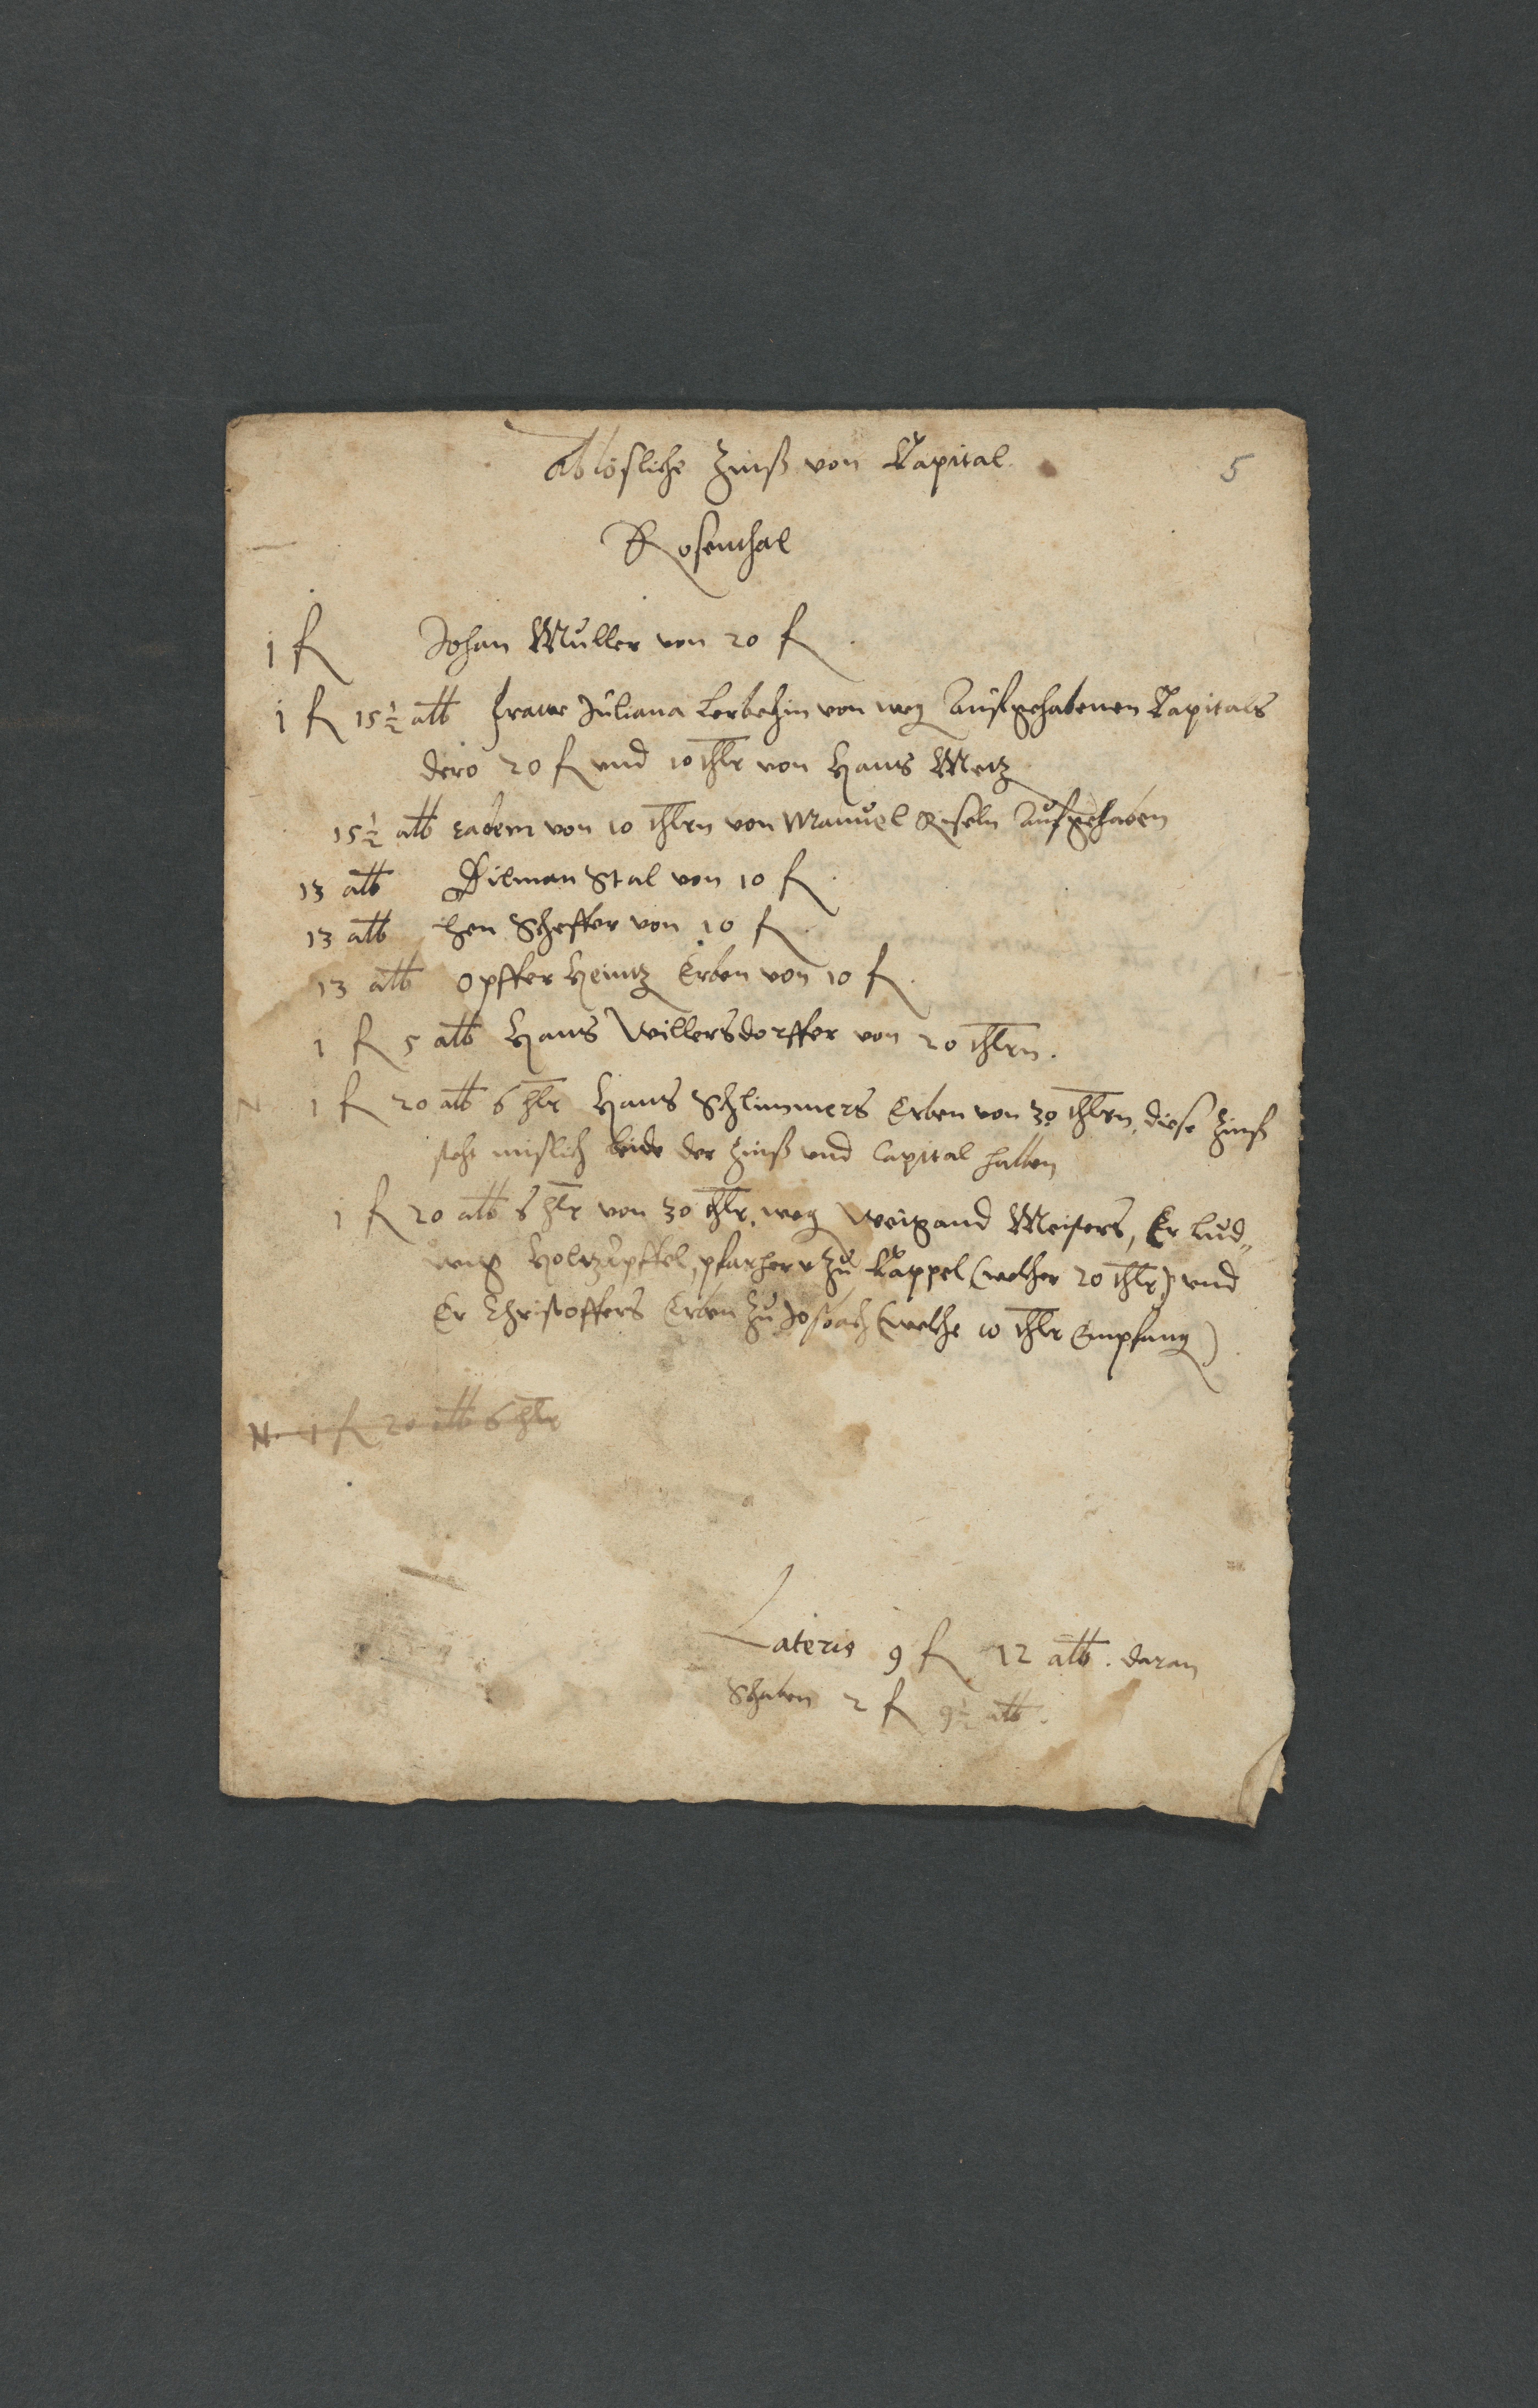 Ablösliche Zinß von Capital
5
Rosenthal
1 fl Johan Müller von 20 fl
1 fl 15 ½ alb fraw Juliana Lerbehin von weg Aufgehabenen Capitals
dero 20 fl vnd 10 thlr von Hans Metz
15 ½ alb eadem von 10 thlrn von Manuel Aufgehaben
13 alb Dilman Stal von 10 fl
13 alb Hen Scheffer von 10 fl
13 alb Opffer Heintz Erben von 10 fl
1 fl 5 alb Hans Willersdorffer von 20 thlrn.
N 1 fl 20 alb 6 hlr Hans Schlimmers Erben von 30 thlrn, diese Zinß
steht mislich beide der Zinß vnd Capital halben
1 fl 20 alb 6 hlr von 30 thlr, weg Weigand Meisers, Er Lud„
wig Holtzapffel, pfarherr zu Cappel (welcher 20 thlr) vnd
Er Christoffers Erben zu Josbach (welche 10 thlr Empfang)
N. 1 fl 20 alb 6 hlr
Lateris 9 fl 12 alb. daran
Schaben 2 fl 9 ½ alb.